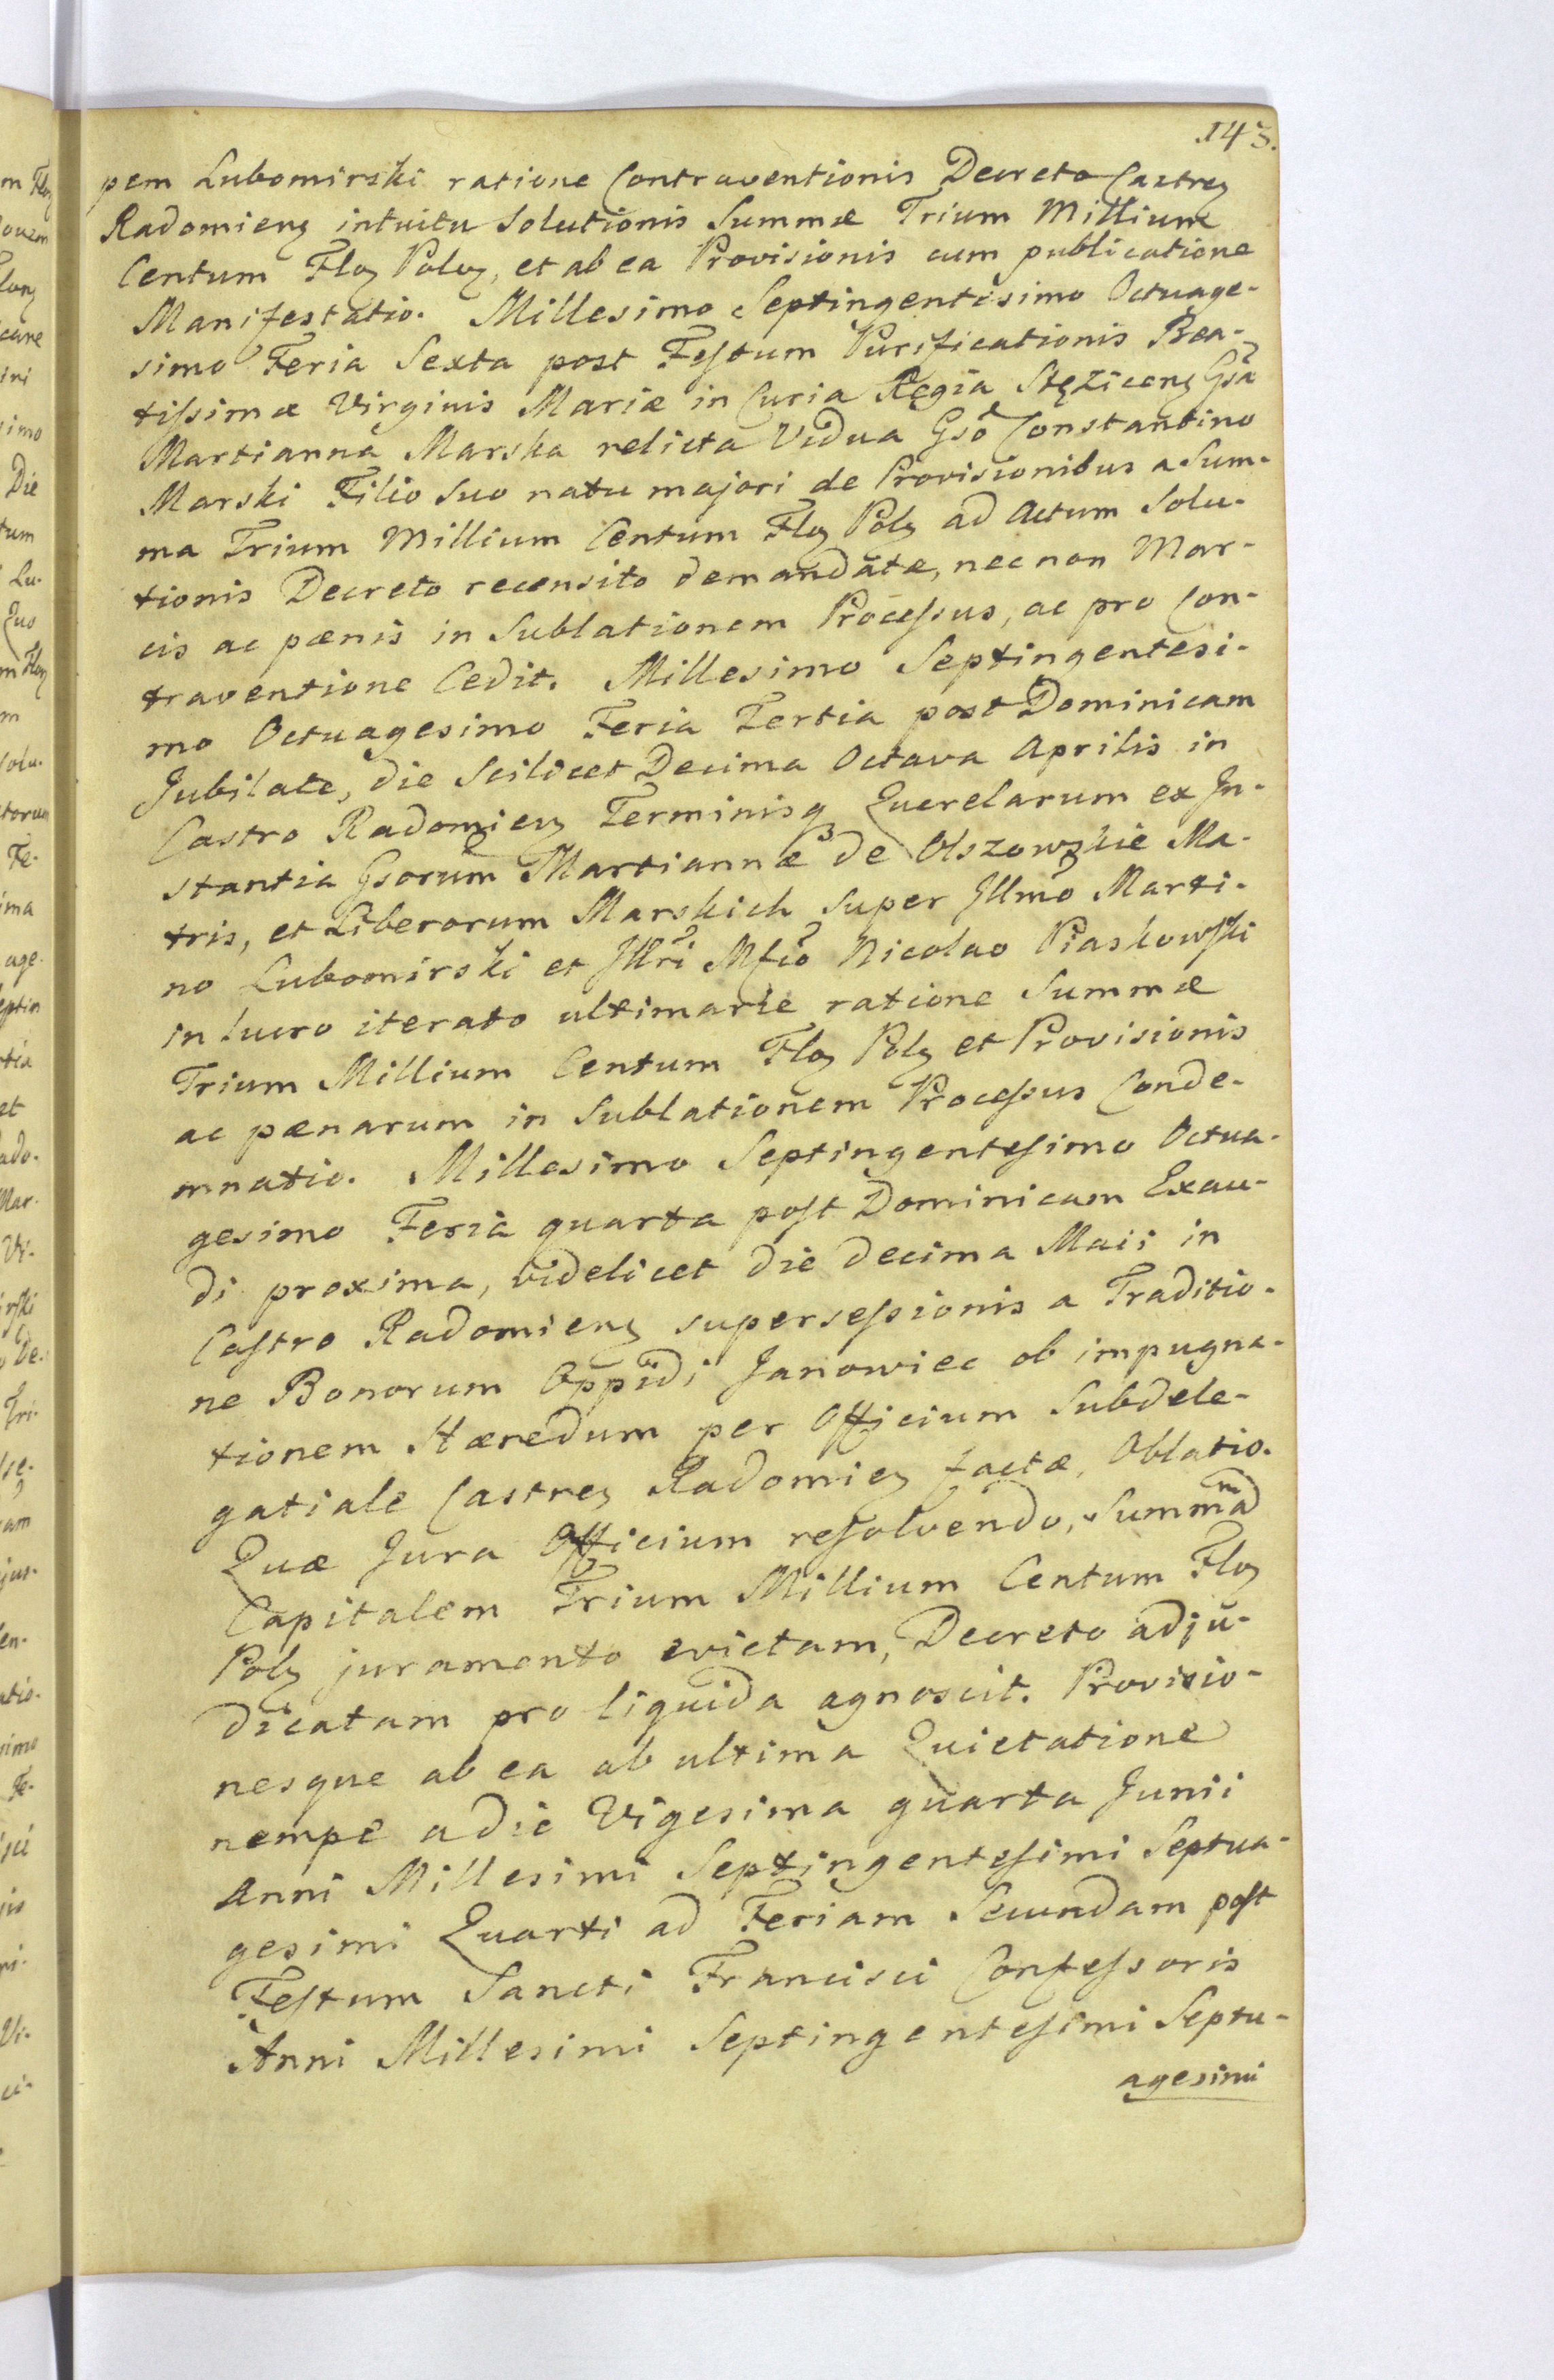 143.
pem Lubomirski ratione Contraventionis Decreto Castreꝫ
Radomienꝫ intuitu Solutionis Summæ Trium Millium
Centum Floꝫ Poloꝫ, et ab ea Provisionis cum publicatione
Manifestatio. Millesimo Septingentesimo Octuage-
simo Feria Sexta post Festum Purificationis Bea-
tissimæ Virginis Mariæ in Curia Regia Stęzicenꝫ Gsa
Martianna Marska relicta Vidua Gso Constantino
Marski Filio Suo natu majori de Provisionibus a Sum-
ma Trium Millium Centum Floꝫ Polꝫ ad Actum Solu-
tionis Decreto recensito demandatæ, nec non Mar-
cis ac pænis in Sublationem Processus, ac pro Con-
traventione Cedit. Millesimo Septingentesi-
mo Octuagesimo Feria Tertia post Dominicam
Jubilate, die Scilicet Decima Octava Aprilis in
Castro Radomienꝫ Terminisqꝫ Querelarum ex In-
stantia Gsorum Martiannæ de Olszowskie Ma-
tris, et Liberorum Marskich Super Illmo Marti-
no Lubomirski et Illri Mfco Nicolao Piaskowski
in lucro iterato ultimarie ratione Summæ
Trium Millium Centum Floꝫ Polꝫ et Provisionis
ac pænarum in Sublationem Processus Conde-
mnatio. Millesimo Septingentesimo Octua-
gesimo Feria quarta post Dominicam Exau-
di proxima, videlicet die decima Maii in
Castro Radomienꝫ supersessionis a Traditio-
ne Bonorum Oppidi Janowiec ob impugna-
tionem Hæredum per Officium Subdele-
gatiale Castreꝫ Radomieꝫ factæ, Oblatio.
Quæ Jura Officium resolvendo, Summam
Capitalem Trium Millium Centum Floꝫ
Polꝫ juramento evictam, Decreto adju-
dicatam pro liquida agnoscit. Provisio-
nesque ab ea ab ultima Quietatione
nempe a die Vigesima quarta Junii
Anni Millesimi Septingentesimi Septua-
gesimi Quarti ad Feriam Secundam post
Festum Sancti Francisci Confessoris
Anni Millesimi Septingentesimi Septu-
agesimi